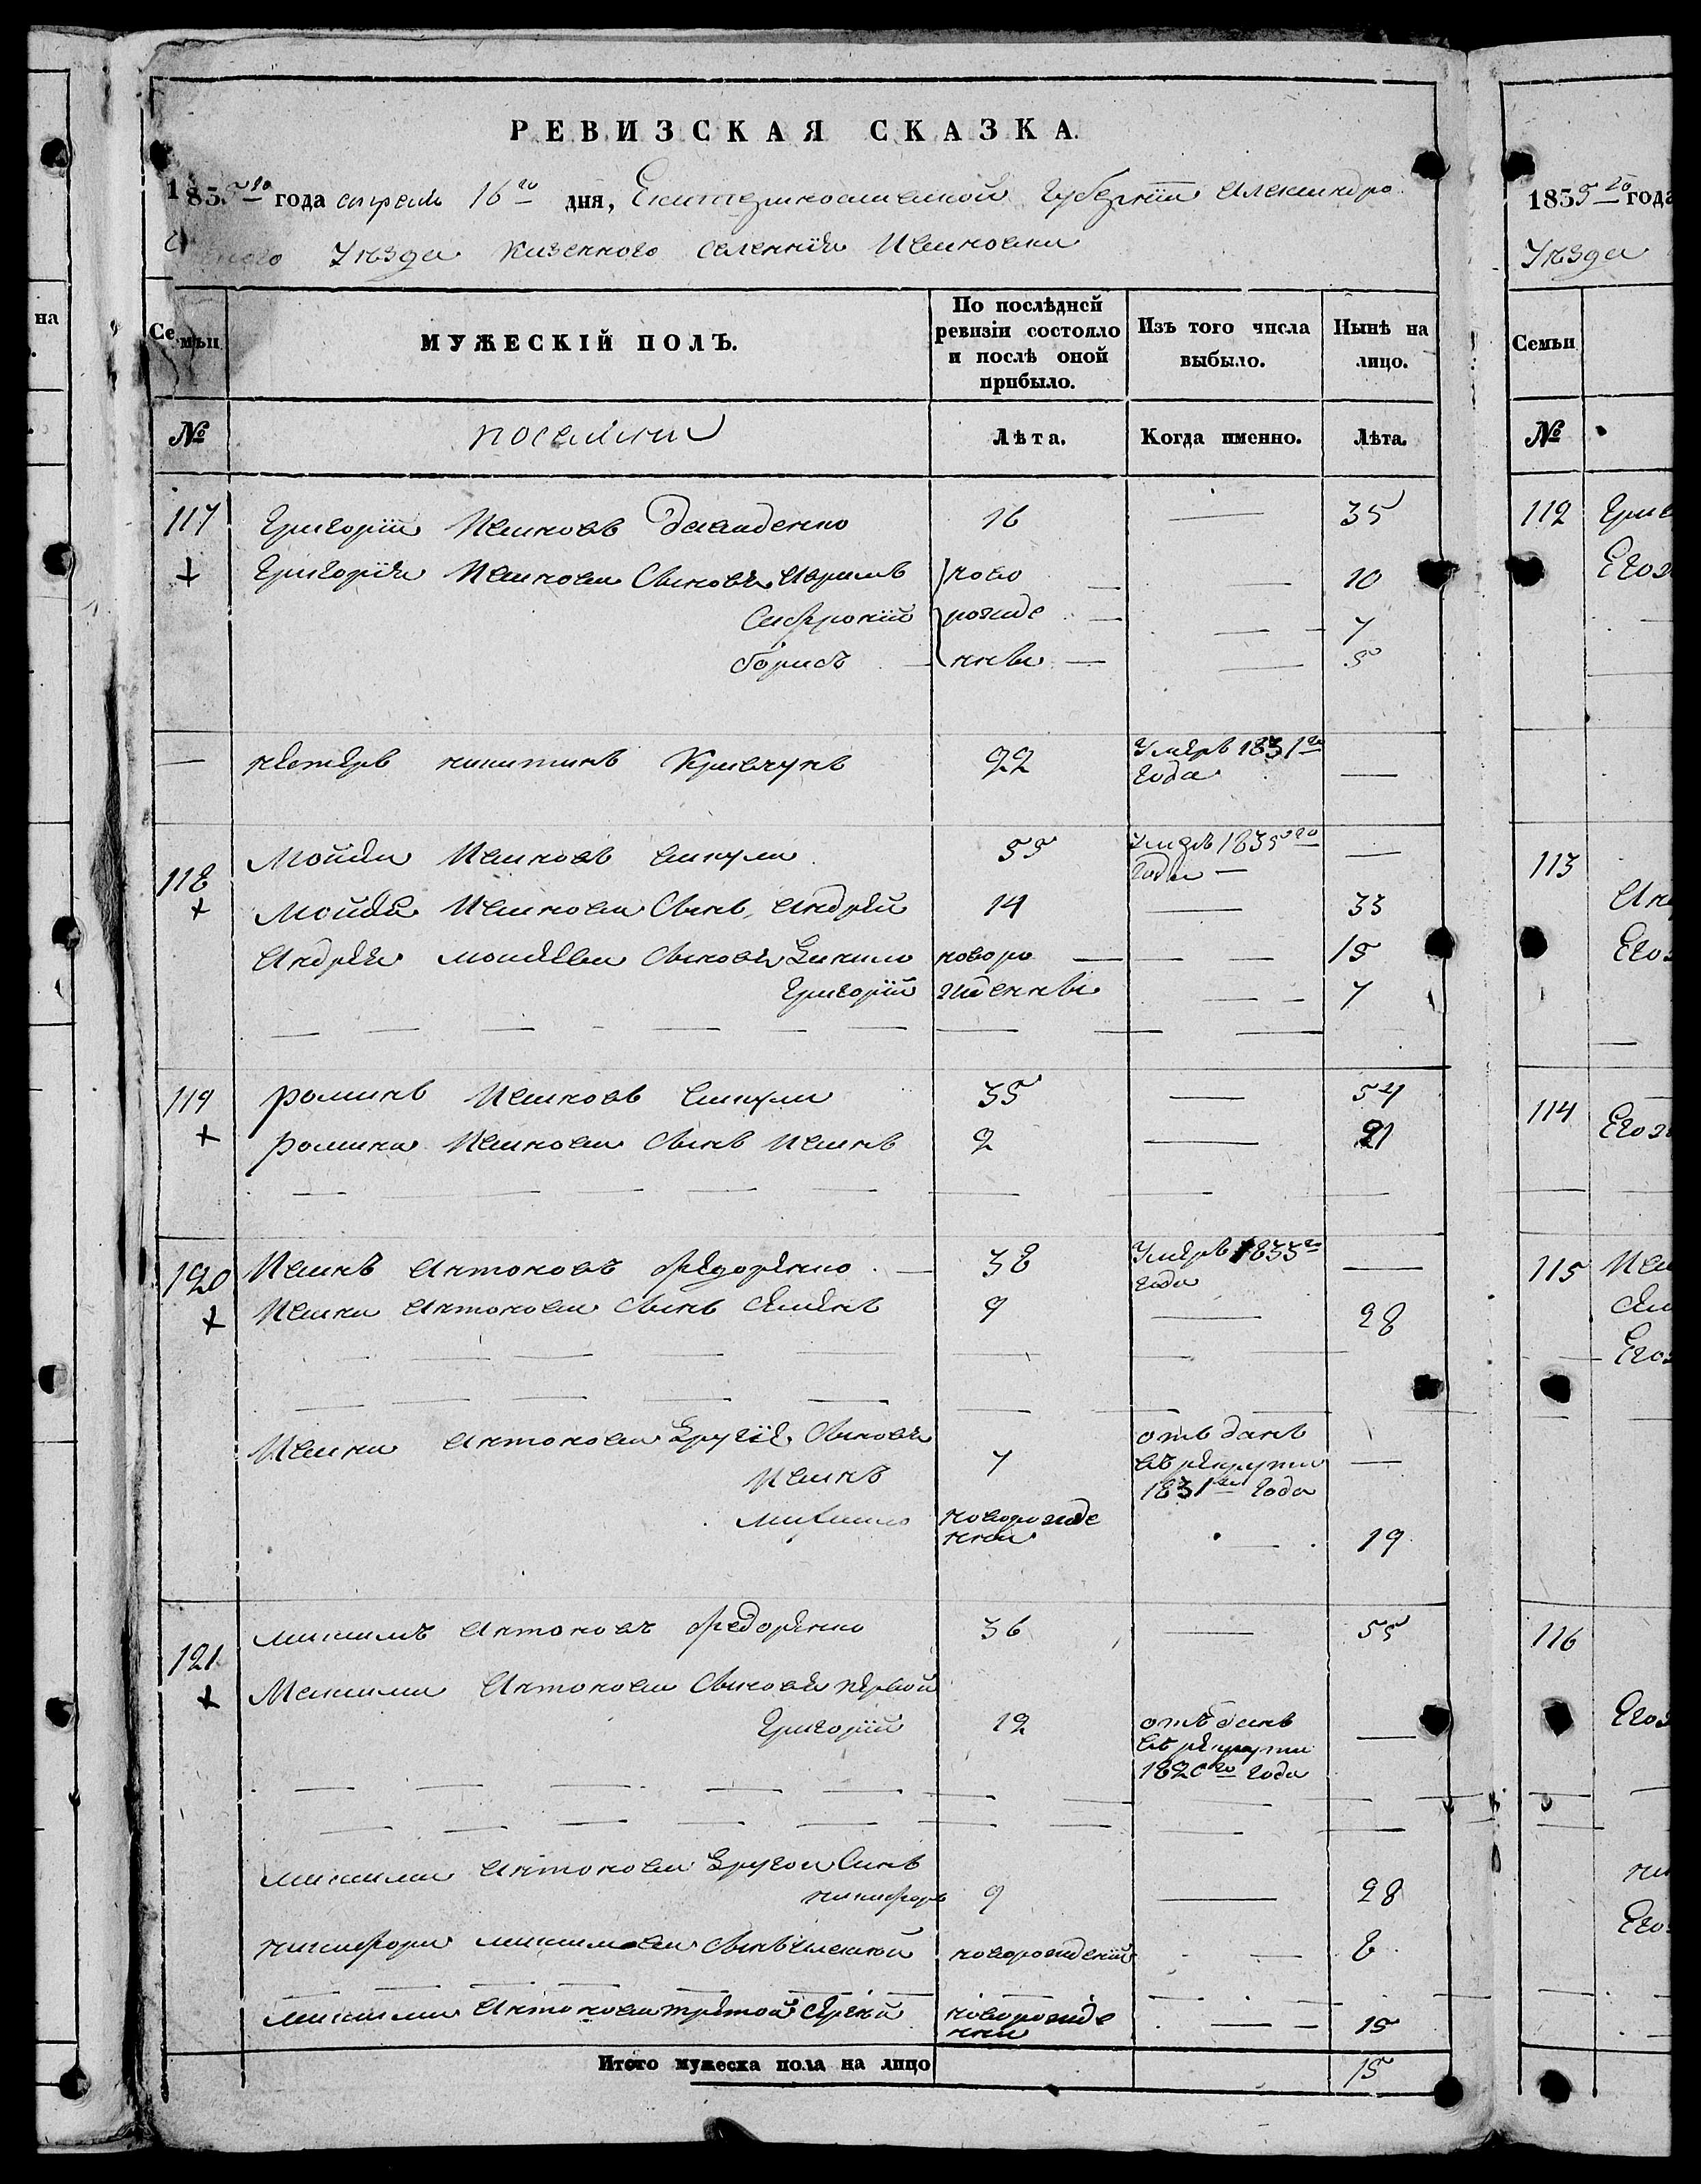 РЕВИЗСКАЯ СКАЗКА.
1835го года апреля 16го дня, Екатеринославской Губернїи Александро
Уезда Казенного селенния Ивановки
Семьи
МУЖЕСКІЙ ПОЛЪ.
По послѣдней ревизіи состояло и послѣ оной прибыло.
Изъ того числа выбыло.
Нынѣ на лицо.
№
поселяни
Лѣта.
Когда именно.
Лѣта.
117 Григорїй Ивановъ Давиденко 16 — 35
Григорїя Иванова Сыновя Аврамъ ново — 10
Сафронїй рожде — 7
борисъ — нны — — 5
— нестеръ никитинъ Кривчунъ 22 Умеръ 1831го года —
118 Мойсѣй Ивановъ 55 Умеръ 1835го года — —
Мойсѣя Иванова Сынъ, андрей 14 — 33
Андрея моисѣева Сыновя Данило новоро — — — 15
Григорїй жденны — — 7
119 романъ Ивановъ 35 — 54
романа Иванова Сынъ иванъ 2 — 21
120 Иванъ антоновъ федоренко — 38 Умеръ 1835го года —
Ивана антонова Сынъ семенъ 9 — 28
Ивана антонова Другїе Сыновя
иванъ 7 отъданъ въ рекруты 1831го года —
михаило новорожде нни — 19
121 максимъ антоновъ федоренко 36 — 55
Максима Антонова Сыновя первой
Григорїй 12 отъданъ въ рекруты 1820го года —
максима антонова Другои Синъ
никифоръ 9 — 28
никифора максимова Сынъ новорожденїй — 8
максима антонова третой Сергей новорожде нни — — 15
Итого мужеска пола на лицо 15
1835го года
Уезда
Семьи
№
112
Его
113
Его
114
Его
115
Его
116
Его
Его
на